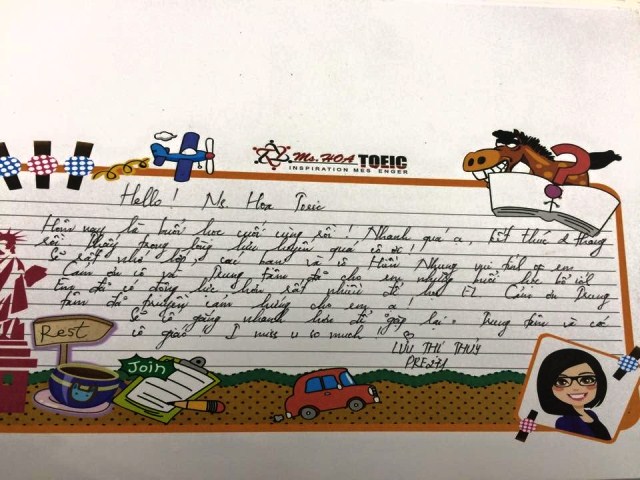 Ms. HOA TOEIC
INSPIRATION MESSENGER
Hello! Ms. Hoa Toeic
Hôm nay là buổi học cuối cùng rồi! Nhanh quá ạ, kết thúc 2 tháng
rồi thấy trong lòng lưu luyến quá cô ơi!
Sẽ rất nhớ lớp, các bạn và cô Nhung
Cảm ơn cô và Trung tâm đã cho em những buổi học bổ ích
Em đã có động lực hơn rất nhiều để học E. Cảm ơn Trung
tâm đã truyền cảm hứng cho em ạ!
Sẽ cố gắng nhanh hơn để gặp lại Trung tâm và các
cô giáo I miss u so much
LƯU THỊ THỦY
PRE271
Rest
Join